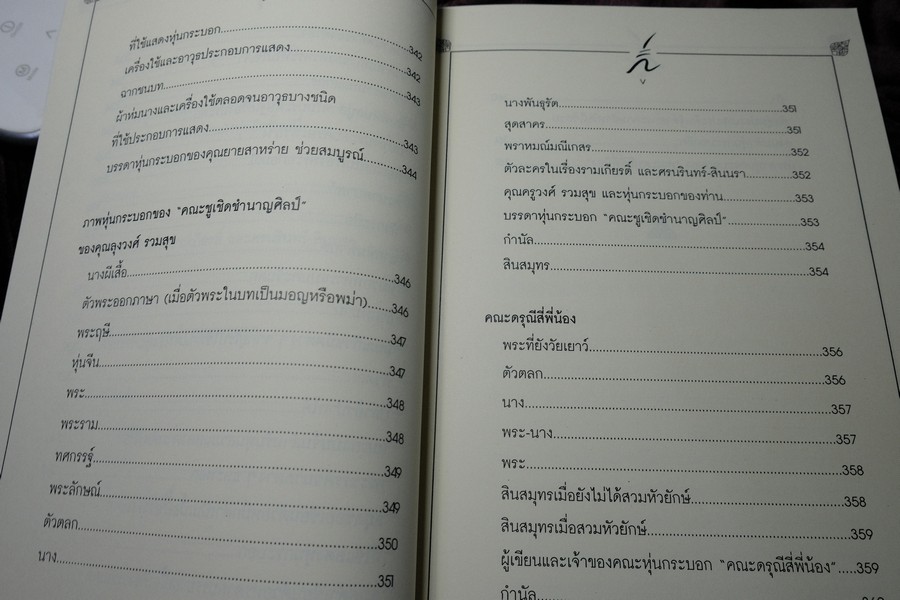 ที่ใช้แสดงหุ่นกระบอก..........342
เครื่องใช้และอาวุธประกอบการแสดง..........342
ฉากชนบท..........343
ผ้าห่มนางและเครื่องใช้ตลอดจนอาวุธบางชนิด
ที่ใช้ประกอบการแสดง..........343
บรรดาหุ่นกระบอกของคุณยายสาหร่าย ช่วยสมบูรณ์..........344
ภาพหุ่นกระบอกของ “คณะชูเชิดชำนาญศิลป์”
ของคุณลุงวงศ์ รวมสุข
นางผีเสื้อ..........346
ตัวพระออกภาษา (เมื่อตัวพระในบทเป็นมอญหรือพม่า)..........346
พระฤษี..........347
หุ่นจีน..........347
พระ..........348
พระราม..........348
ทศกรรฐ์..........349
พระลักษณ์..........349
ตัวตลก..........350
นาง..........351
นางพันธุรัต..........351
สุดสาคร..........351
พราหมณ์มณีเกสร..........352
ตัวละครในเรื่องรามเกียรติ์ และศรนรินทร์-สินนรา..........352
คุณครูวงศ์ รวมสุข และหุ่นกระบอกของท่าน..........353
บรรดาหุ่นกระบอก “คณะชูเชิดชำนาญศิลป์”..........353
กำนัล..........354
สินสมุทร..........354
คณะดรุณีสี่พี่น้อง
พระที่ยังวัยเยาว์..........356
ตัวตลก..........356
นาง..........357
พระ-นาง..........357
พระ..........358
สินสมุทรเมื่อยังไม่ได้สวมหัวยักษ์..........358
สินสมุทรเมื่อสวมหัวยักษ์..........359
ผู้เขียนและเจ้าของคณะหุ่นกระบอก “คณะดรุณีสี่พี่น้อง”.....359
กำนัล..........